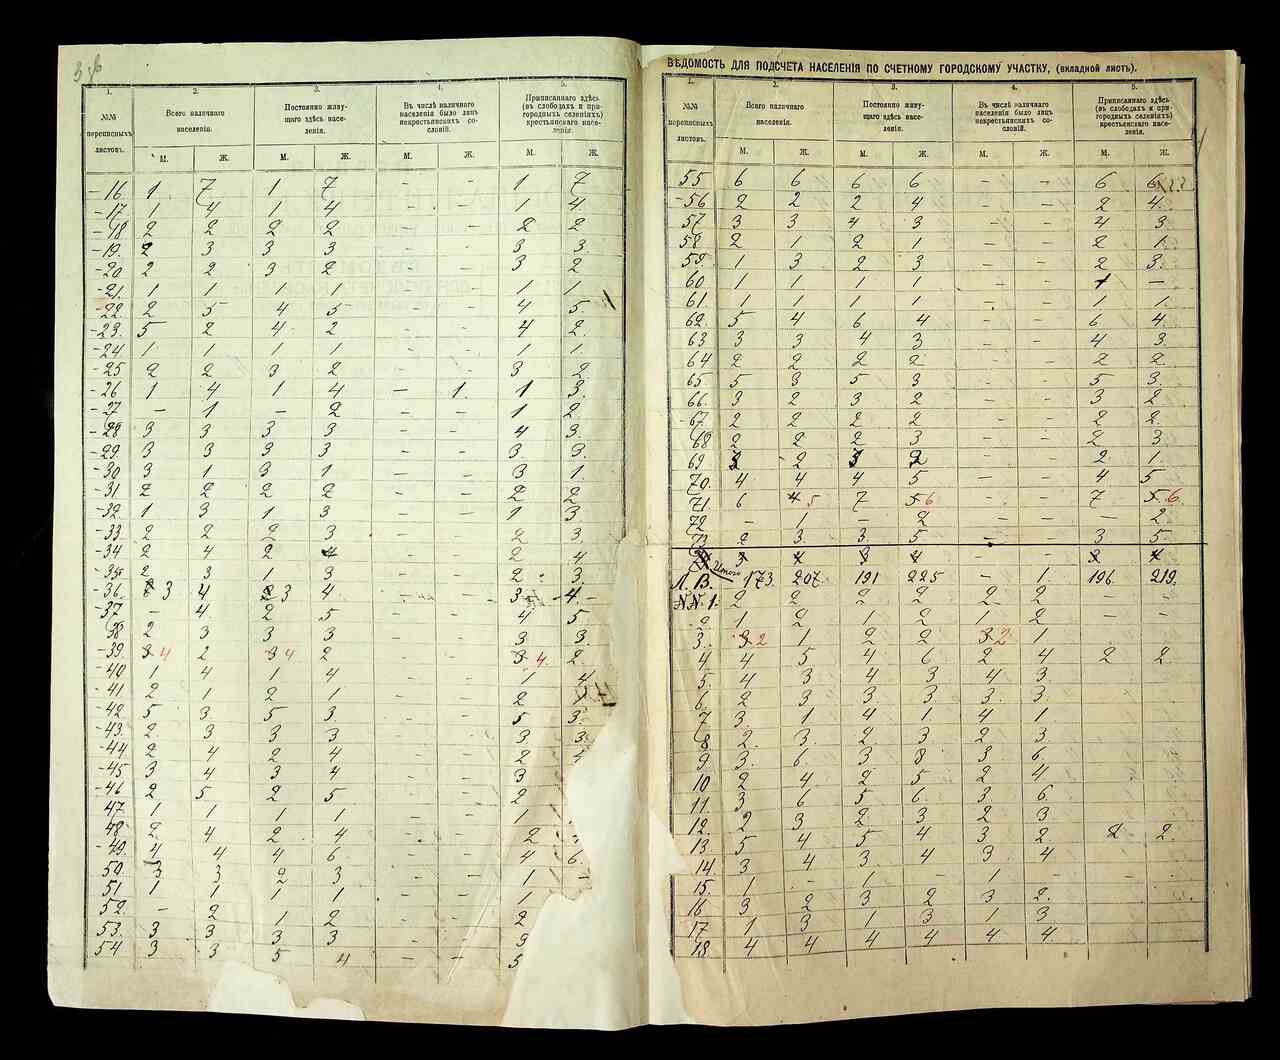 1. 2. 3. 4. 5.
№№ переписныхъ листовъ. Всего наличнаго населенія. Постоянно живущаго здѣсь населенія. Въ числѣ наличнаго населенія было лицъ некрестьянскихъ сословій. Приписаннаго здѣсь (въ слободахъ и пригородныхъ селеніяхъ) крестьянскаго населенія.
М. Ж. М. Ж. М. Ж. М. Ж.
-16 1 7 1 7 - - 1 7
-17 1 4 1 4 - - 1 4
-18 2 2 2 2 - - 2 2
-19. 2 3 3 3 - - 3 3.
-20 2 2 3 2 - - 3 2
-21. 1 1 1 1 - - 1 1.
-22. 2 5 4 5 - - 4 5.
-23. 5 2 4 2 - - 4 2.
-24 1 1 1 1 - - 1 1.
-25 2 2 3 2 - - 3 2
-26 1 4 1 4 - 1. 1 3.
-27 - 1 - 2 - - 1 2.
-28 3 3 3 3 - - 4 3.
-29. 3 3 3 3 - - 3. 3.
-30 3 1 3 1 - - 3 1.
-31 2 2 2 2 - - 2 2
-32. 1 3 1 3 - - 1 3
-33 2 2 2 3 - - 2 3.
-34 2 4 2 4 - - 2 4
-35 2 3 1 3 - - 2 3.
-36. 3 4 3 4 - - 3 4.
-37 - 4. 2 5 - - 4 5
38 2 3 3 3 - - 3 3.
-39. 3 4 2 3 4 2 - - 3 4. 2.
-40 1 4 1 4 - - 1 4
-41 2 1 2 1 - - 2
-42 5 3 5 3 - - 5 3.
-43. 2 3 3 3 - - 3 3.
-44 2 4 2 4 - - 2
-45 3 4 3 4 - - 3
-46 2 5 2 5 - - 2
47 1 1 1 1 - - 1
48 2 4 2 4 - - 2
-49. 4 4 4 6 - - 4 6.
50. 3 3 2 3 - - 1 -
51 1 1 1 1 - - 1
52. - 2 1 2 - - 2
53. 3 3 3 3 - - 3
54 3 3 5 4 - - 5
ВѢДОМОСТЬ ДЛЯ ПОДСЧЕТА НАСЕЛЕНІЯ ПО СЧЕТНОМУ ГОРОДСКОМУ УЧАСТКУ, (вкладной листъ).
1. 2. 3. 4. 5.
№№ переписныхъ листовъ. Всего наличнаго населенія. Постоянно живущаго здѣсь населенія. Въ числѣ наличнаго населенія было лицъ некрестьянскихъ сословій. Приписаннаго здѣсь (въ слободахъ и пригородныхъ селеніяхъ) крестьянскаго населенія.
М. Ж. М. Ж. М. Ж. М. Ж.
55 6 6 6 6 - - 6 6
-56 2 2 2 4 - - 2 4.
57 3 3 4 3 - - 4 3
58 2 1 2 1 - - 2 1.
59. 1 3 2 3 - - 2 3.
60 1 1 1 1 - - 1 -
61. 1 1 1 1 - - 1 1.
62. 5 4 6 4 - - 6 4.
63 3 3 4 3 - - 4 3
64 2 2 2 2 - - 2 2.
65 5 3 5 3 - - 5 3.
66. 3 2 3 2 - - 3 2
67 2 2 2 2 - - 2 2.
68 2 2 2 3 - - 2 3
69 3 2 3 2 2. 1.
70. 4 4 4 5 - - 4 5
71 6 4 5 7 5 6 - - 7 5 6.
72 - 1 - 2 - - - 2
73 2 3 3. 5 - - 3 5.
74 3 4 3 4 - - 3 4
Л. В. Итого 173. 207. 191 225 - 1. 196. 219.
№№ 1. 2 2 2 2 2 2 - -
2 1 2 1 2 1 2 - -
3. 3 2 1 2 2 3 2 1
4 4 5 4 6 2 4 2 2
5. 4 3 4 3 4 3.
6. 2 3 3 3 3. 3.
7 3. 1 4 1 4 1
8 2. 3 2 3 2 3.
9 3. 6 3 8 3 6.
10 2 4 2 5 2 4
11. 3 6 5 6. 3 6.
12. 2 3 2 3 2 3
13. 5 4 5 4 3 2 2 2.
14. 3 4 3 4 3 4
15. 1 - 1 - 1 -
16 3 2 3 2 3 2.
17 1 3 1 3 1 3
18. 4 4 4 4 4 4.